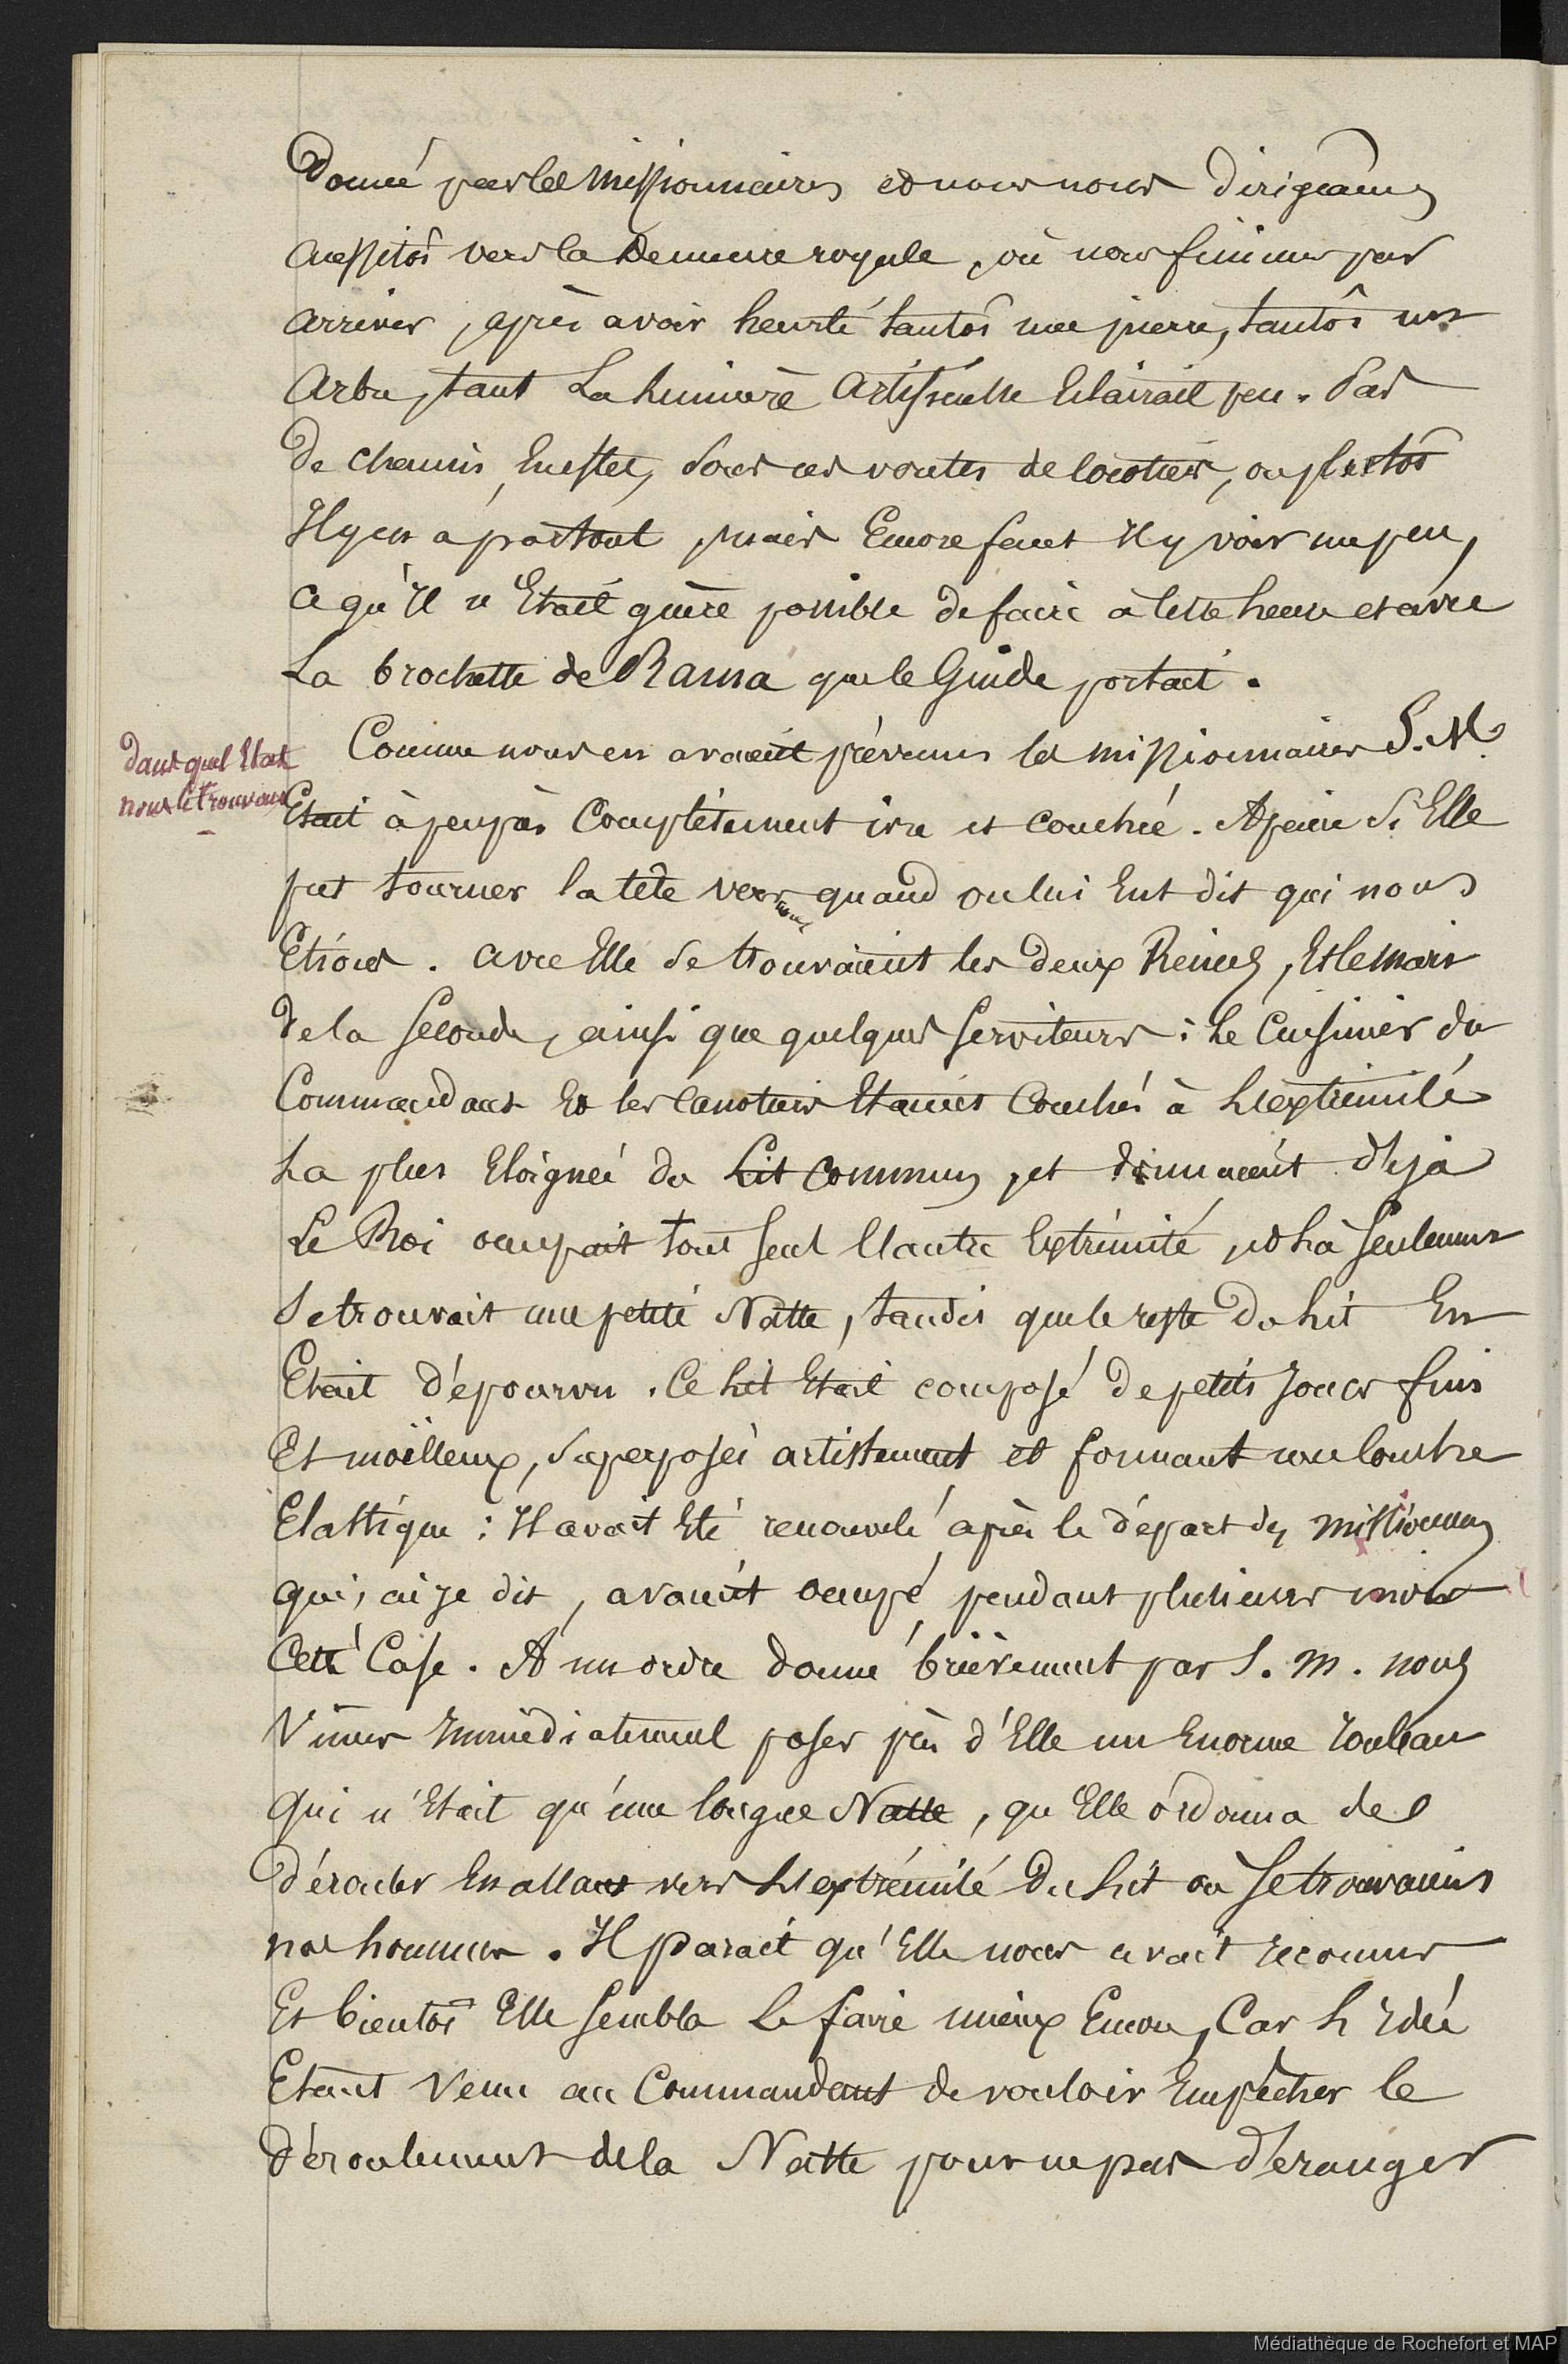 Donné par les missionnaires et nous nous dirigeâmes
aussitôt vers la Demeure royale, où nous finîmes par
arriver, après avoir heurté tantôt une pierre, tantôt un
arbre, tant La lumière artificielle Eclairait peu. Pas
De chemin, En effet, sous ces voutes de cocotiers, ou plutôt
Il y en a partout, mais Encore faut Il y voir un peu,
ce qu'Il n'Etait guère possible de faire à cette heure et avec
La brochette de Rama que le Guide portait.
dans quel Etat
nous le trouvons
Comme nous en avaient prévenus les missionnaires S. M.
Etait à peu près Complètement ivre et couchée. A peine si Elle
put tourner la tête vers nous quand on lui Eut dit qui nous
Etions. avec Elle se trouvaient les deux Reines, Et le mari
de la seconde, ainsi que quelques serviteurs : Le Cuisinier du
Commandant Et les canotiers Etaient Couchés à L'extrémité
La plus Eloignée du Lit commun, et dormaient déjà
Le Roi occupait tout seul l'autre Extrémité, et Là seulement
se trouvait une petite Natte, tandis que le reste du Lit En
Etait dépourvu. Ce Lit Etait composé de petits joncs fins
Et moëlleux, superposés artistement et formant une couche
Elastique : Il avait Eté renouvelé après le départ des missionnaires
qui, ai je dit, avaient occupé pendant plusieurs mois
Cette Case. A un ordre donné brièvement par S. M. nous
Vîmes Immédiatement poser près d'Elle un Enorme rouleau
qui n'Etait qu'une longue Natte, qu'Elle ordonna de
dérouler En allant vers L'extrémité du Lit où se trouvaient
nos hommes. Il parait qu'Elle nous avait reconnus
Et bientôt Elle sembla Le faire mieux Encore, Car L'Idée
Etant venue au Commandant de vouloir Empêcher le
déroulement de la Natte pour ne pas déranger
Médiathèque de Rochefort et MAP